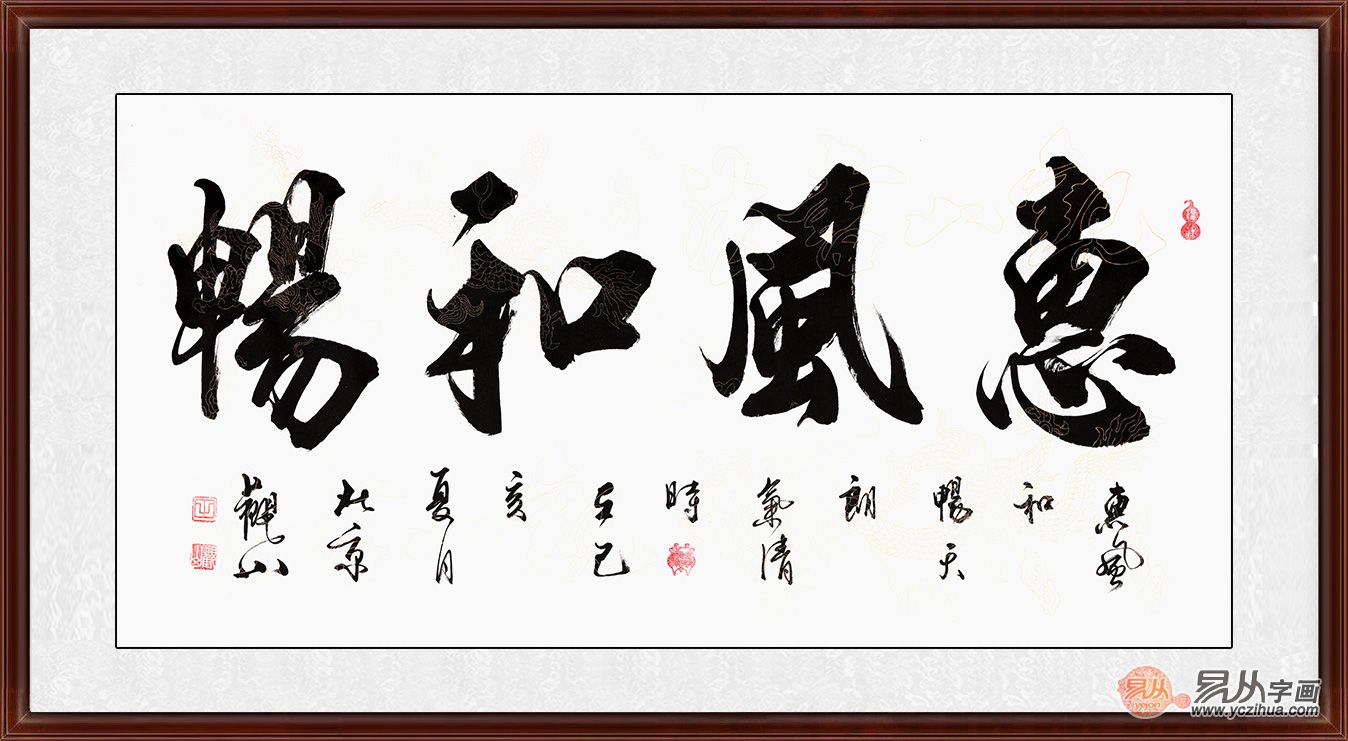 惠風和暢
惠風
和
暢天
朗
氣清
時
于己
亥
夏月
北京
觀山
易从
易从字画
www.yczihua.com